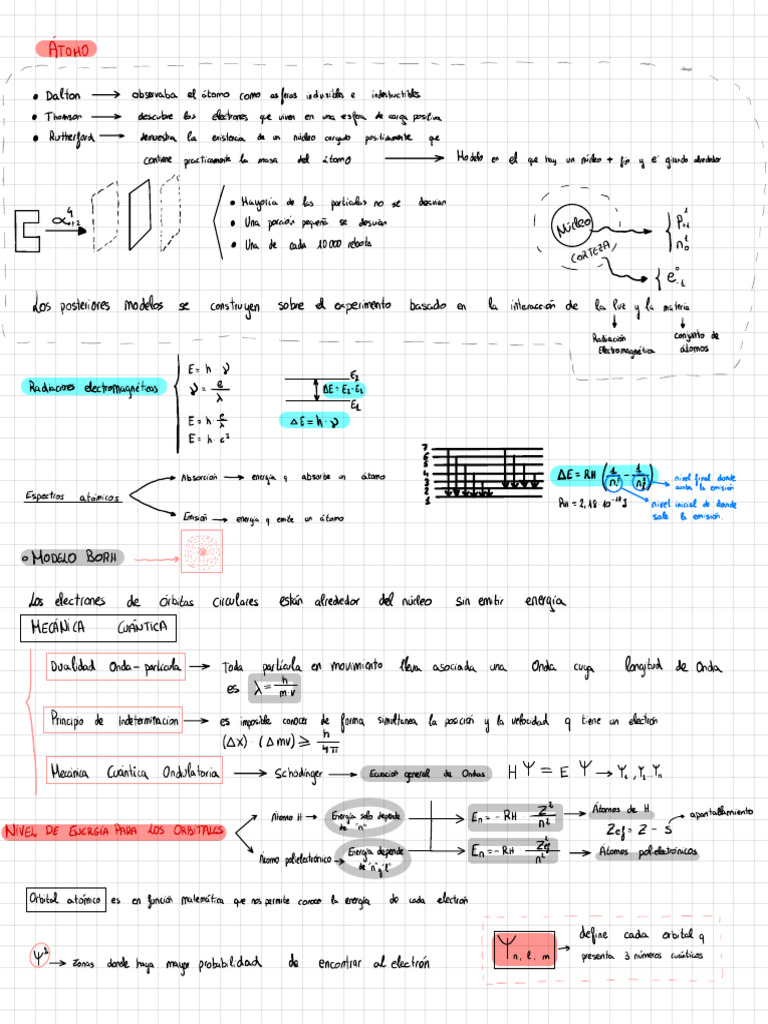 ÁTOMO
• Dalton → observaba el átomo como esferas indivisibles e indestructibles
• Thomson → descubre los electrones que viven en una esfera de carga positiva
• Rutherford → demuestra la existencia de un núcleo cargado positivamente que
contiene practicamente la masa del átomo → Modelo en el que hay un núcleo + fijo y e⁻ girando alrededor
α⁴₊₂
• Mayoria de las partículas no se desvian
• Una porción pequeña se desvian
• Una de cada 10000 rebota
Núcleo
CORTEZA
P¹₊₁
n¹₀
e⁰₋₁
Los posteriores modelos se construyen sobre el experimento basado en la interacción de la luz y la materia
Radiación Electromagnética
conjunto de átomos
Radiaciones electromagnéticas
E = h · ν
ν = c/λ
E = h · c/λ
E = h · c²
E₂
ΔE = E₂ - E₁
E₁
ΔE = h · ν
7
6
5
4
3
2
1
ΔE = RH (1/nᵢ² - 1/n_f²)
RH = 2,18 · 10⁻¹⁸ J
nivel final donde
acaba la emisión
nivel inicial de donde
sale la emisión.
Espectros atómicos
Absorción → energía q absorbe un átomo
Emisión → energía q emite un átomo
• MODELO BORH
Los electrones de órbitas circulares están alrededor del núcleo sin emitir energía
MECÁNICA CUÁNTICA
Dualidad Onda-partícula → Toda partícula en movimiento lleva asociada una Onda cuya longitud de Onda
es λ = h/m·v
Principio de Indeterminacion → es imposible conocer de forma simultanea la posición y la velocidad q tiene un electrón
(Δx) · (Δmv) ≥ h/4π
Mecánica Cuántica Ondulatoria → Schödinger → Ecuación general de Ondas HΨ = EΨ → Ψ₁, Ψ₂, Ψₙ
NIVEL DE ENERGÍA PARA LOS ORBITALES
Átomo H → Energía solo depende de "n"
Eₙ = - RH · Z²/n² → Átomos de H
Zef = Z - S → apantallamiento
Átomo polielectrónico → Energía depende de "n" y "l"
Eₙ = - RH · Zef²/n² → Átomos polielectrónicos
Orbital atómico es en función matemática que nos permite conocer la energía de cada electrón
Ψ² → Zonas donde haya mayor probabilidad de encontrar al electrón
Ψ n, l, m → define cada orbital q
presenta 3 números cuánticos